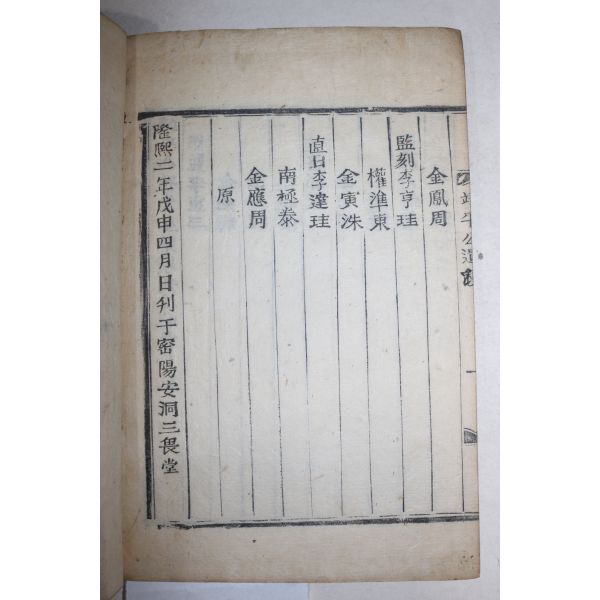 靖平公遺
金鳳周
監刻李亨珪
權準東
金寅洙
直日李達珪
南極泰
金應周
原
隆熙二年戊申四月日刊于密陽安洞三畏堂